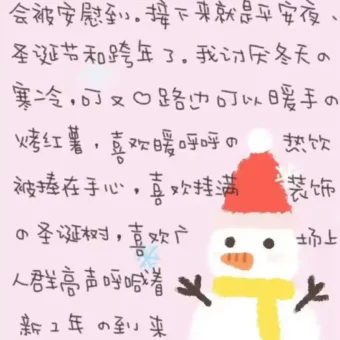 会被安慰到。接下来就是平安夜、
圣诞节和跨年了。我讨厌冬天の
寒冷,可又♡路边可以暖手の
烤红薯,喜欢暖呼呼の 热饮
被捧在手心,喜欢挂满 装饰
の圣诞树,喜欢广 场上
人群高声呼喊着
新1年の到来